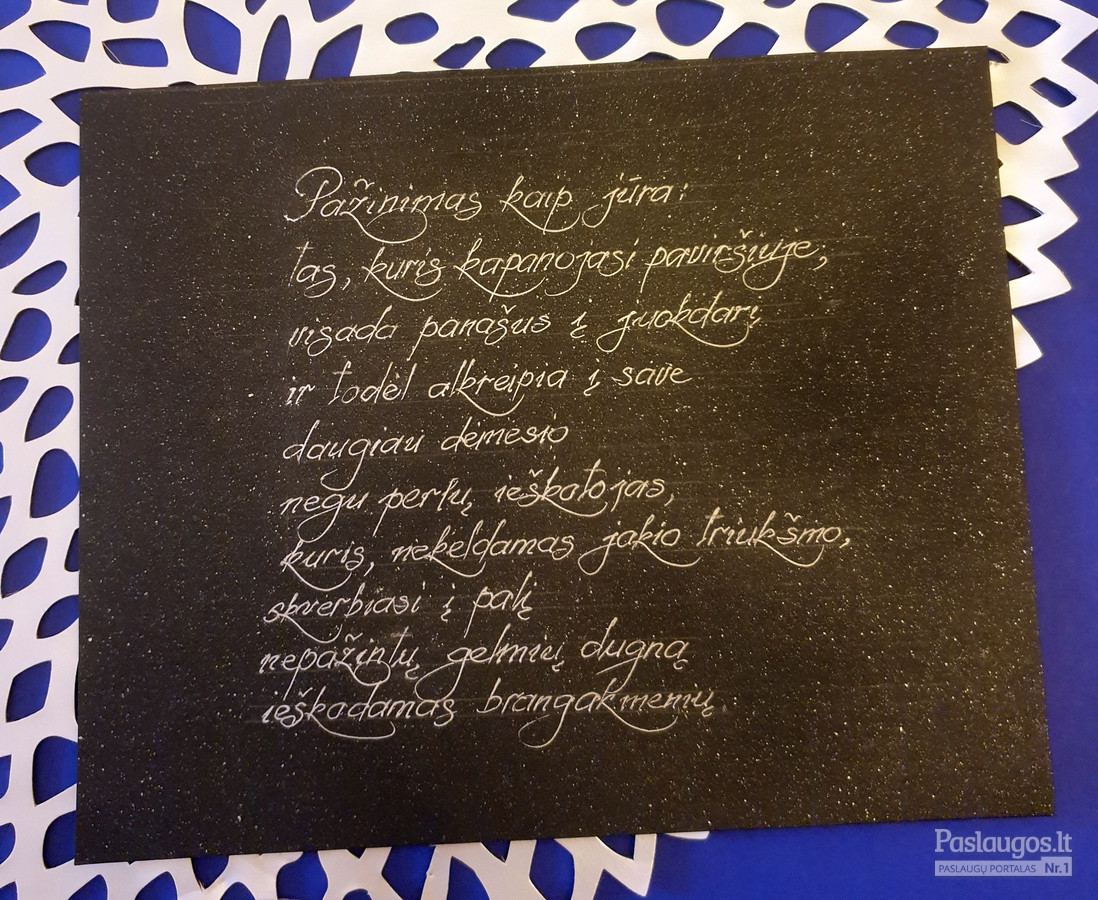 Pažinimas kaip jūra:
tas, kuris kapanojasi paviršiuje,
visada panašus į juokdarį
ir todėl atkreipia į save
daugiau dėmesio
negu perlų ieškotojas,
kuris, nekeldamas jokio triukšmo,
skverbiasi į patį
nepažintų gelmių dugną
ieškodamas brangakmenių.
Paslaugos.lt
PASLAUGŲ PORTALAS Nr.1